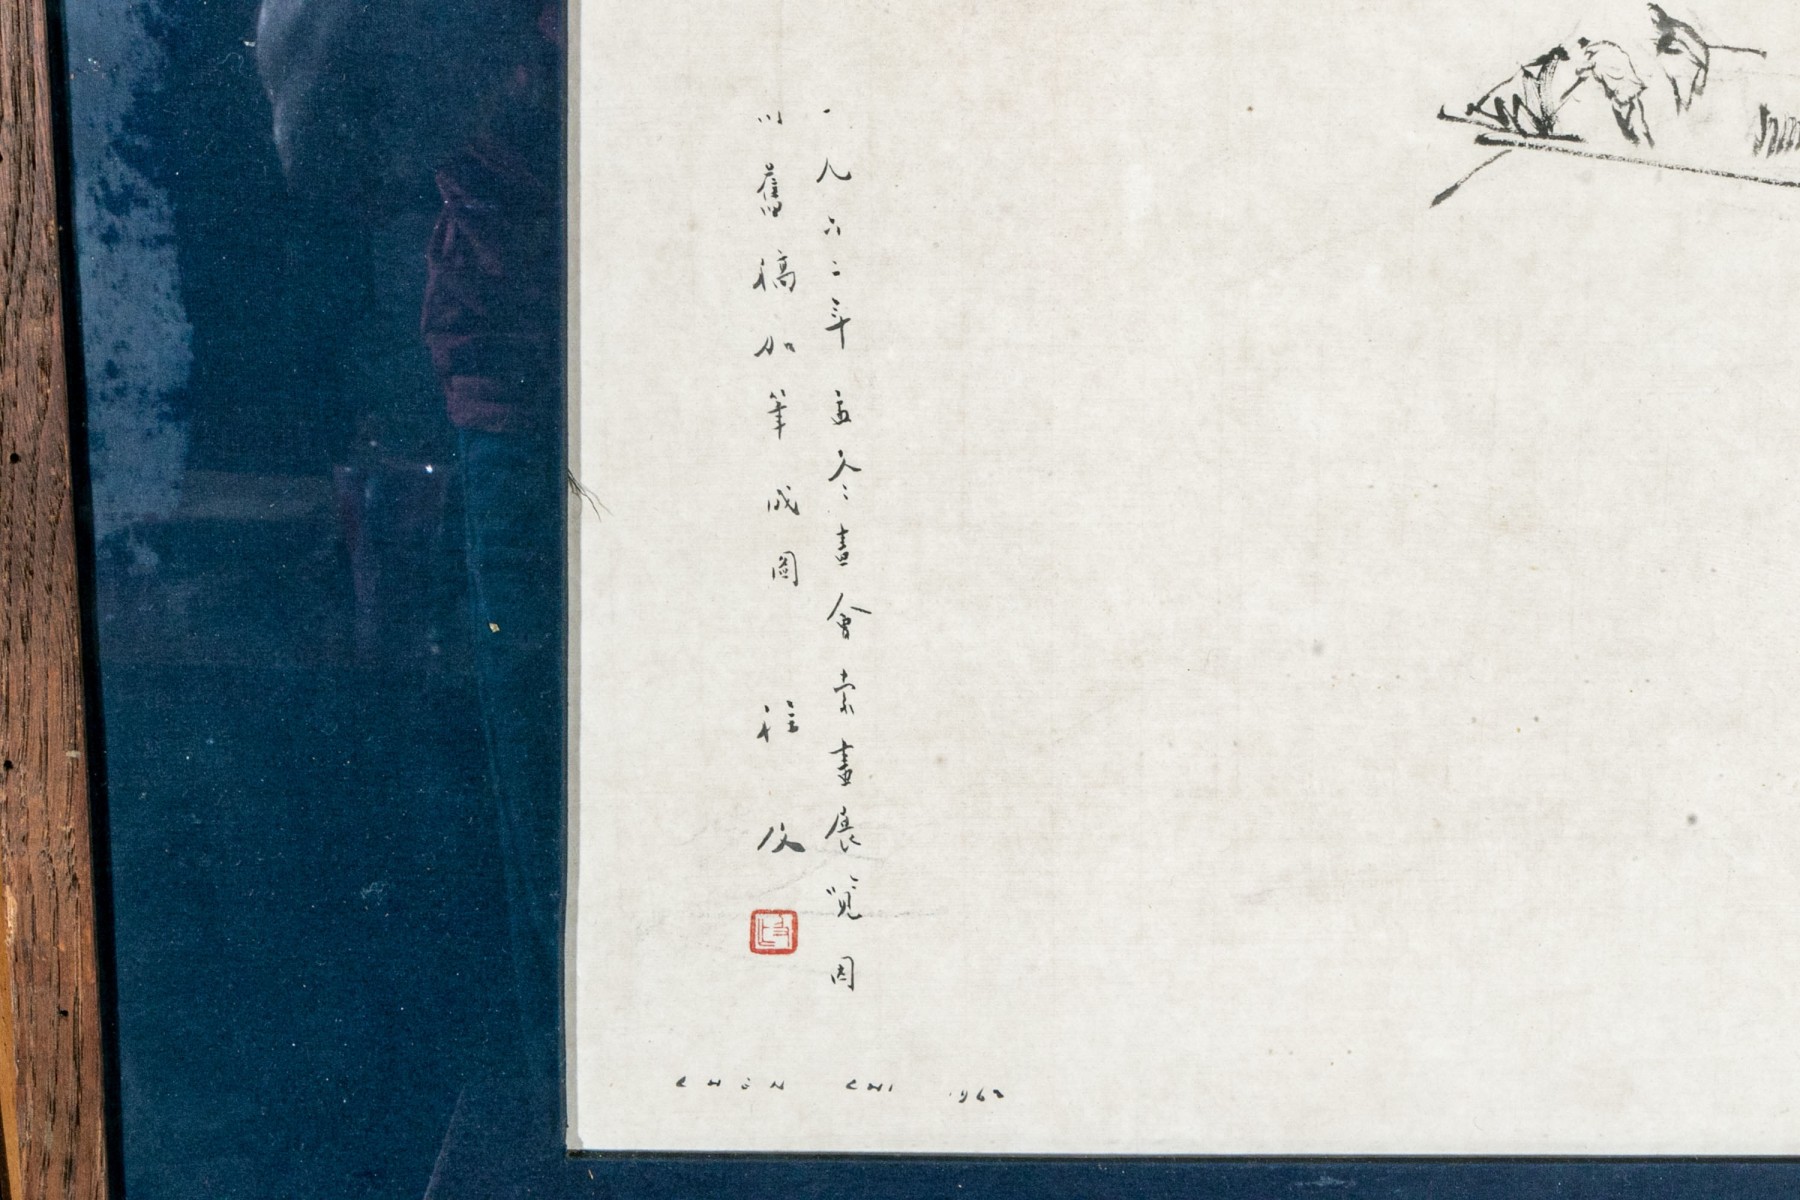 一九六二年孟冬畫會索畫展覽因
以舊稿加筆成圖 程及
CHEN CHI 1962